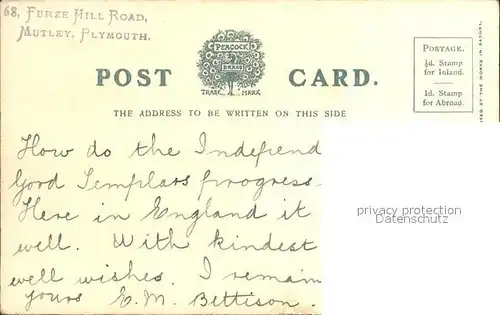 68, FURZE HILL ROAD,
MUTLEY, PLYMOUTH.
PEACOCK
BRAND
TRADE MARK
POST CARD.
POSTAGE.
½d. Stamp
for Inland.
1d. Stamp
for Abroad.
THE ADDRESS TO BE WRITTEN ON THIS SIDE
How do the Indepiend
Good Templars progress.
Here in England it
well. With kindest
well wishes. I remain
yours E. M. Bettison.
privacy protection
Datenschutz
AT THE WORKS IN SAXONY.